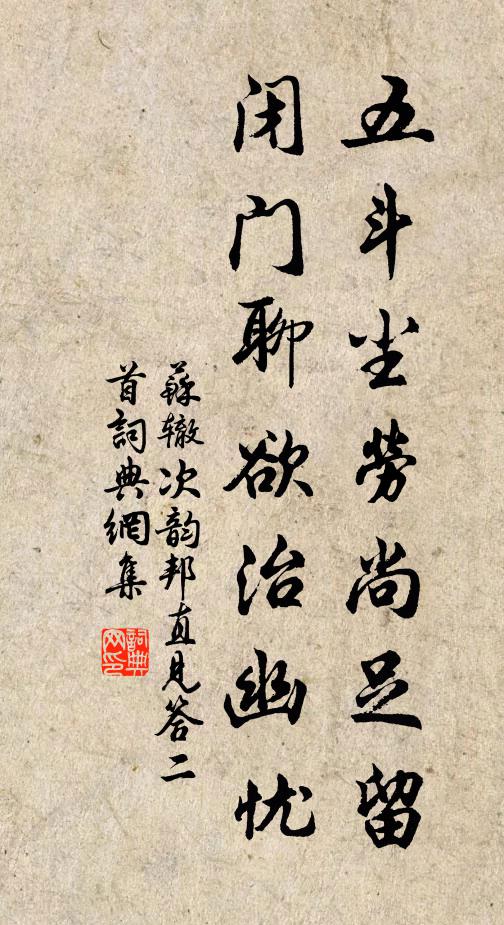 五斗尘勞尚足留
闭门聊欲治幽忧
蘇辙次韵邦直見答二
首詞典網集
詞典
网印